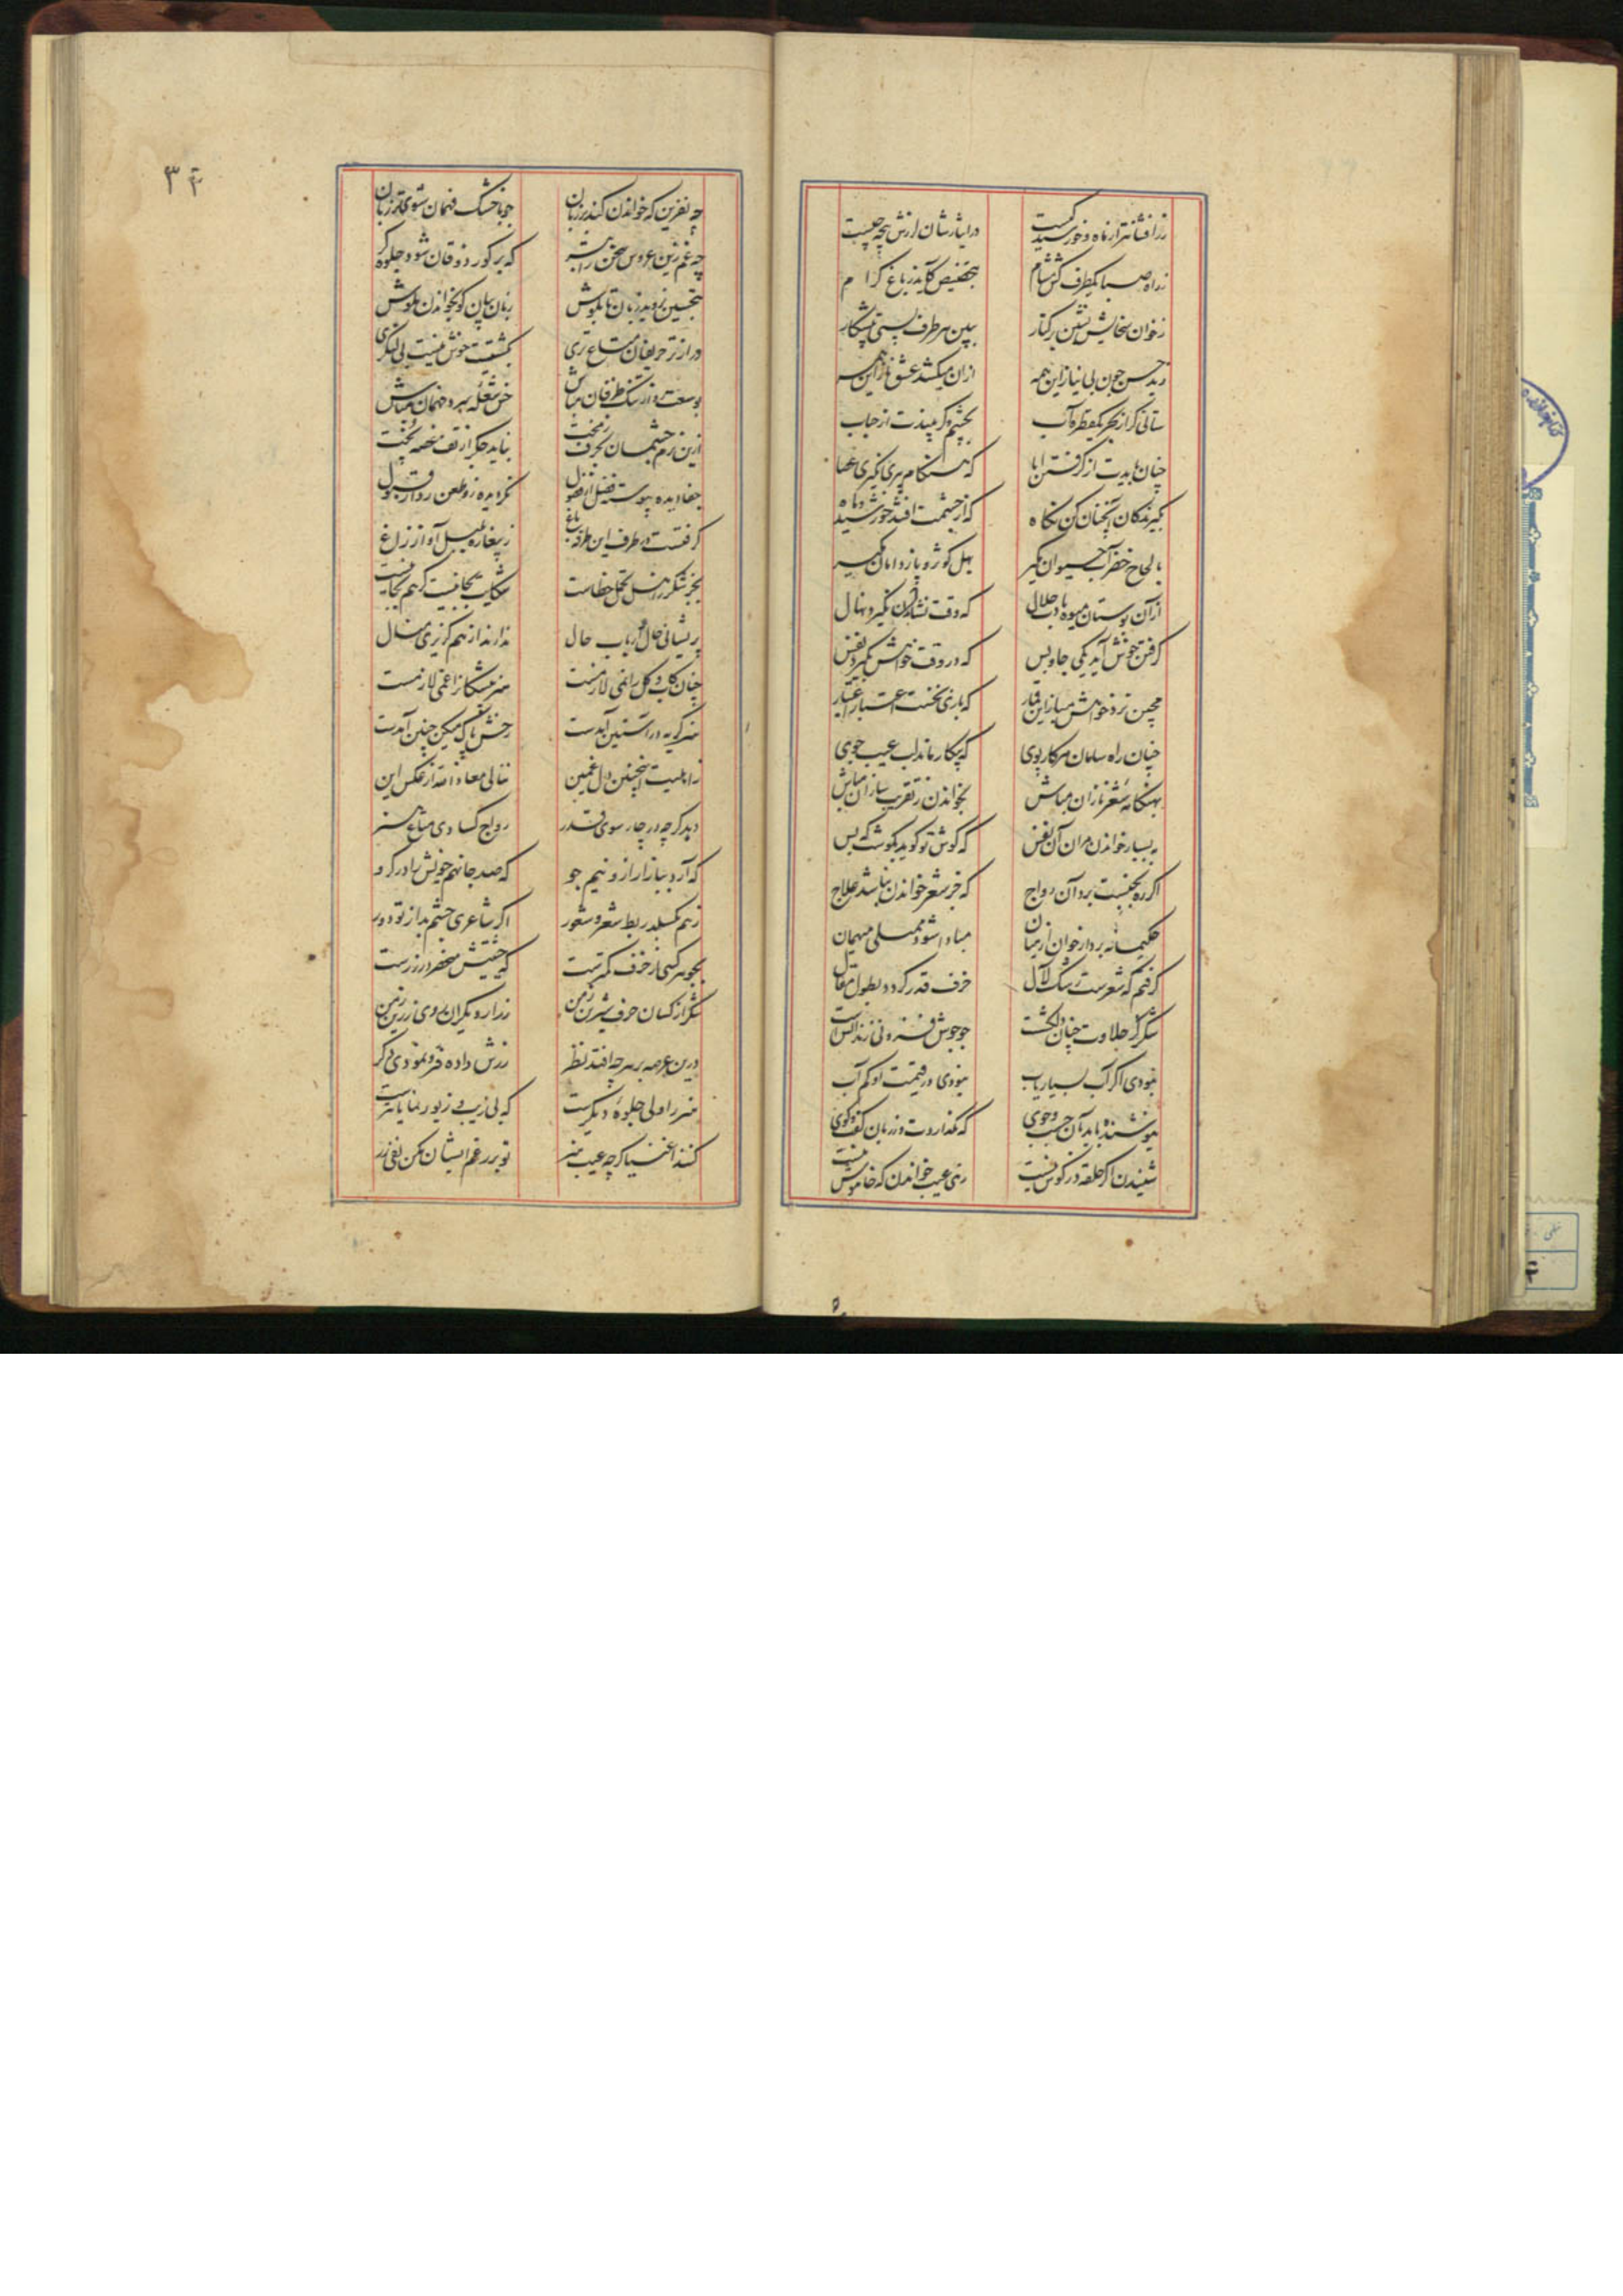 زرافشانتر از ماه و خورشید کیست در ایثارشان لرزش پنجه چیست
ز راه صبا یکطرف کش مشام بتخصیص کآید ز باغ کرام
ز خوان سخایش نشین بر کنار ببین هر طرف پستی پیشکار
ز بد حسن چون بی نیاز این همه از آن میکشد عشق ناز این همه
ستانی گر از بحر یکقطره آب بچشم کم بیندت از حباب
چنان بایدت از گرفتن ابا که هنگام پیری نگیری عصا
بگیرندگان آنچنان کن نگاه که از چشمت افتند خورشید و ماه
بالحاح خضر آب حیوان مگیر بهل کوثر و باز دامان مگیر
از آن بوستان میوه بادت حلال که وقت نشاندن نگیرد نهال
گرفتن خوش آید یکی جا و بس که در وقت خواندن بگیرد نفس
مچین نرد خواهش میاز این قمار که بازی نخست اعتبار اعتبار
چنان راه سامان هر کار پوی که بیکار ماند لب عیب جوی
بهنگامه شعر نازان مباش بخواندن ز تقریب سازان مباش
به بسیار خواندن مران آن نفس که گوش تو گوید بگوشت که بس
اگر ره بجنبست بر دآن رواج که جز شعر خواندن نباشد علاج
حکیمانه بردار خوان از میان مبادا شود ممتلی میهمان
گرفتم که شعرست رشک لآل خزف قدر گردد بطول مقال
شکر کز حلاوت چنان دلکشست چو جوش فزونی زند آتشست
نبودی اگر آب بسیار یاب نبودی در قیمت او کم آب
نیوشنده باید بآن جست و جوی که نگذاردت در زبان گفت و گوی
شنیدن اگر حلقه در گوش نیست زهی عیب خواندن که خاموش نیست
۳۴
چه نفرین که خواندن کند بر زبان چو با خشک فهمان شوی تر زبان
چه غم زین عروس سخن را بتر که بر کور ذوقان شود جلوه گر
بتحسین نروید زبان تا بگوش زبان بیان گو بخواندن مکوش
در از تر حریفان متاع تری بکشتیت خوش نیست بی لنگری
بوسعت در از تنگ ظرفان مباش خس شعله سرد فهمان مباش
ازین نرم چشمان بحرف زمخت نباید جگر از تف غصه پخت
جفا دیده پیوسته فضل از فضول نگردیده زو طعن رد از قبول
گرفتست در طرف این طرفه باغ ز پیغاره بلبل آواز زاغ
بجز شکر ز اهل تحمل خطاست شکایت بجا نیست گر هم بجاست
پریشانی حال و ارباب حال ندارند از هم گزیری مثال
چنان کآب و گل را نمی لازمست هنر پیشگان را غمی لازمست
هنر گر یه در آستین آمدست رخش پاک مسکین چنین آمدست
ز اهلیت اینچنین دل غمین تعالی معاذ الله از عکس این
دید گر چه در چار سوی قدر رواج کسادی متاع هنر
که آرد ببازار ارزو نیم جو که صد جا نهم خویش را در گرو
ز هم نگسلد ربط شعر و شعور اگر شاعری چشم بد از تو دور
بجوهر کسی از خزف کمترست که حقیش منحصر در زرست
شکر از کسان حرف شیرین ز من زر از دیگران روی زرین ز من
درین عرصه بر هر چه افتد نظر زرش داده قر و نمودی دگر
هنر را ولی جلوه دیگرست که بی زیب و زیور نمایانترست
کند اغنیا گر چه عیب هنر تو بر رغم ایشان مکن نفی زر